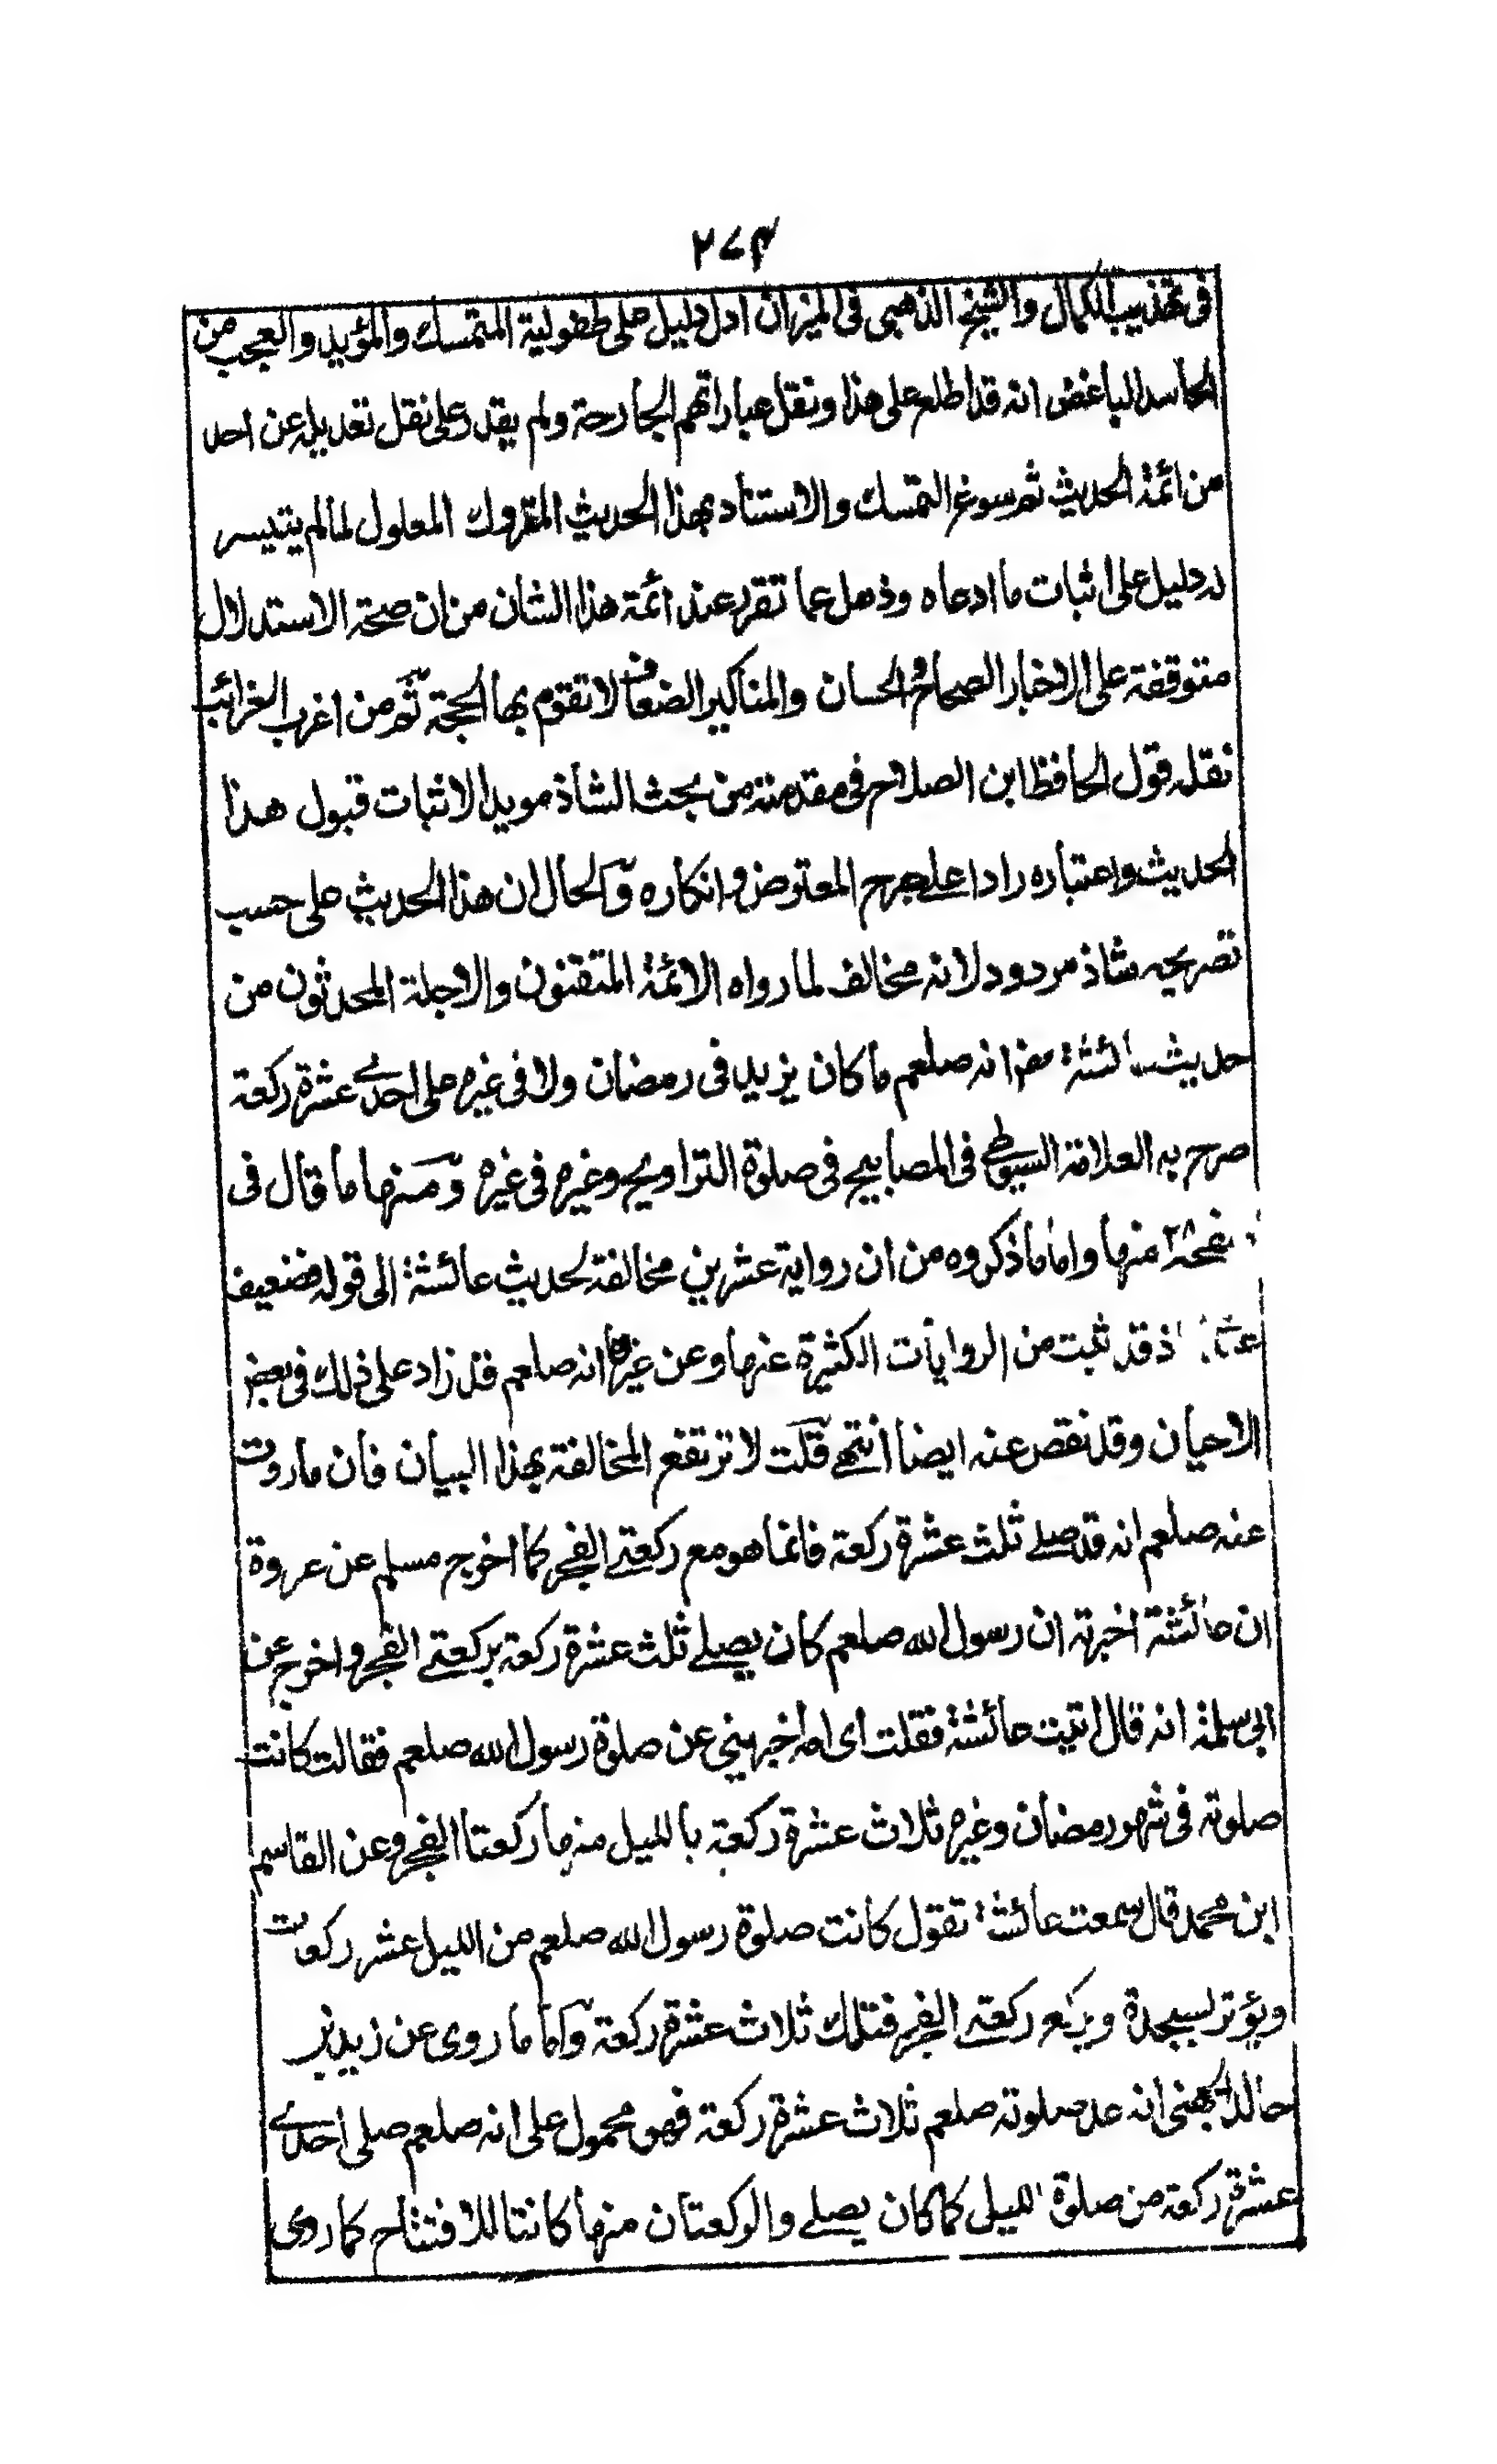 ٢٧٤
فى تهذيب الكمال والشيخ الذهبى فى الميزان ادل دليل على طفولية المتمسك والمؤيد والعجب من
الحاسد الباغض انه قد اطلع على هذا ونقل عباراتهم الجارحة ولم يقدر على نقل تعديله عن احد
من ائمة الحديث ثم سوغ التمسك والاستناد بهذا الحديث المتروك المعلول لما لم يتيسر
له دليل على اثبات ما ادعاه وذهل عما تقرر عند ائمة هذا الشان من ان صحة الاستدلال
متوقفة على الاخبار الصحاح والحسان والمناكير الضعاف لا تقوم بها الحجة ثم من اغرب الغرائب
نقله قول الحافظ ابن الصلاح فى مقدمته من بحث الشاذ مويدا لاثبات قبول هذا
الحديث واعتباره رادا على جرح المعترض وانكاره والحال ان هذا الحديث على حسب
تصريحه شاذ مردود لانه مخالف لما رواه الائمة المتقنون والاجلة المحدثون من
حديث عائشة انه صلعم ما كان يزيد فى رمضان ولا فى غيره على احدى عشرة ركعة
صرح به العلامة السيوطى فى المصابيح فى صلوة التراويح وغيره فى غيره ومنها ما قال فى
صفحة ٢٨ منها واما ما ذكروه من ان رواية عشرين مخالفة لحديث عائشة الى قوله فضعيف
اذ قد ثبت من الروايات الكثيرة عنها وعن غيرها انه صلعم قد زاد على ذلك فى بعض
الاحيان وقد نقص عنه ايضا انتهى قلت لا ترتفع المخالفة بهذا البيان فان ما روت
عنه صلعم انه قد صلى ثلث عشرة ركعة فانما هو مع ركعتى الفجر كما اخرج مسلم عن عروة
ان عائشة اخبرته ان رسول الله صلعم كان يصلى ثلث عشرة ركعة بركعتى الفجر واخرج عن
ابى سلمة انه قال اتيت عائشة فقلت اى امه اخبرينى عن صلوة رسول الله صلعم فقالت كانت
صلوته فى شهر رمضان وغيره ثلاث عشرة ركعة بالليل منها ركعتا الفجر وعن القاسم
ابن محمد قال سمعت عائشة تقول كانت صلوة رسول الله صلعم من الليل عشر ركعات
ويؤتر بسجدة ويركع ركعتى الفجر فتلك ثلاث عشرة ركعة واما ما روى عن زيد بن
خالد الجهنى انه عد صلوته صلعم ثلاث عشرة ركعة فهو محمول على انه صلعم صلى احدى
عشرة ركعة من صلوة الليل كما كان يصلى والركعتان منها كانتا للافتتاح كما روى